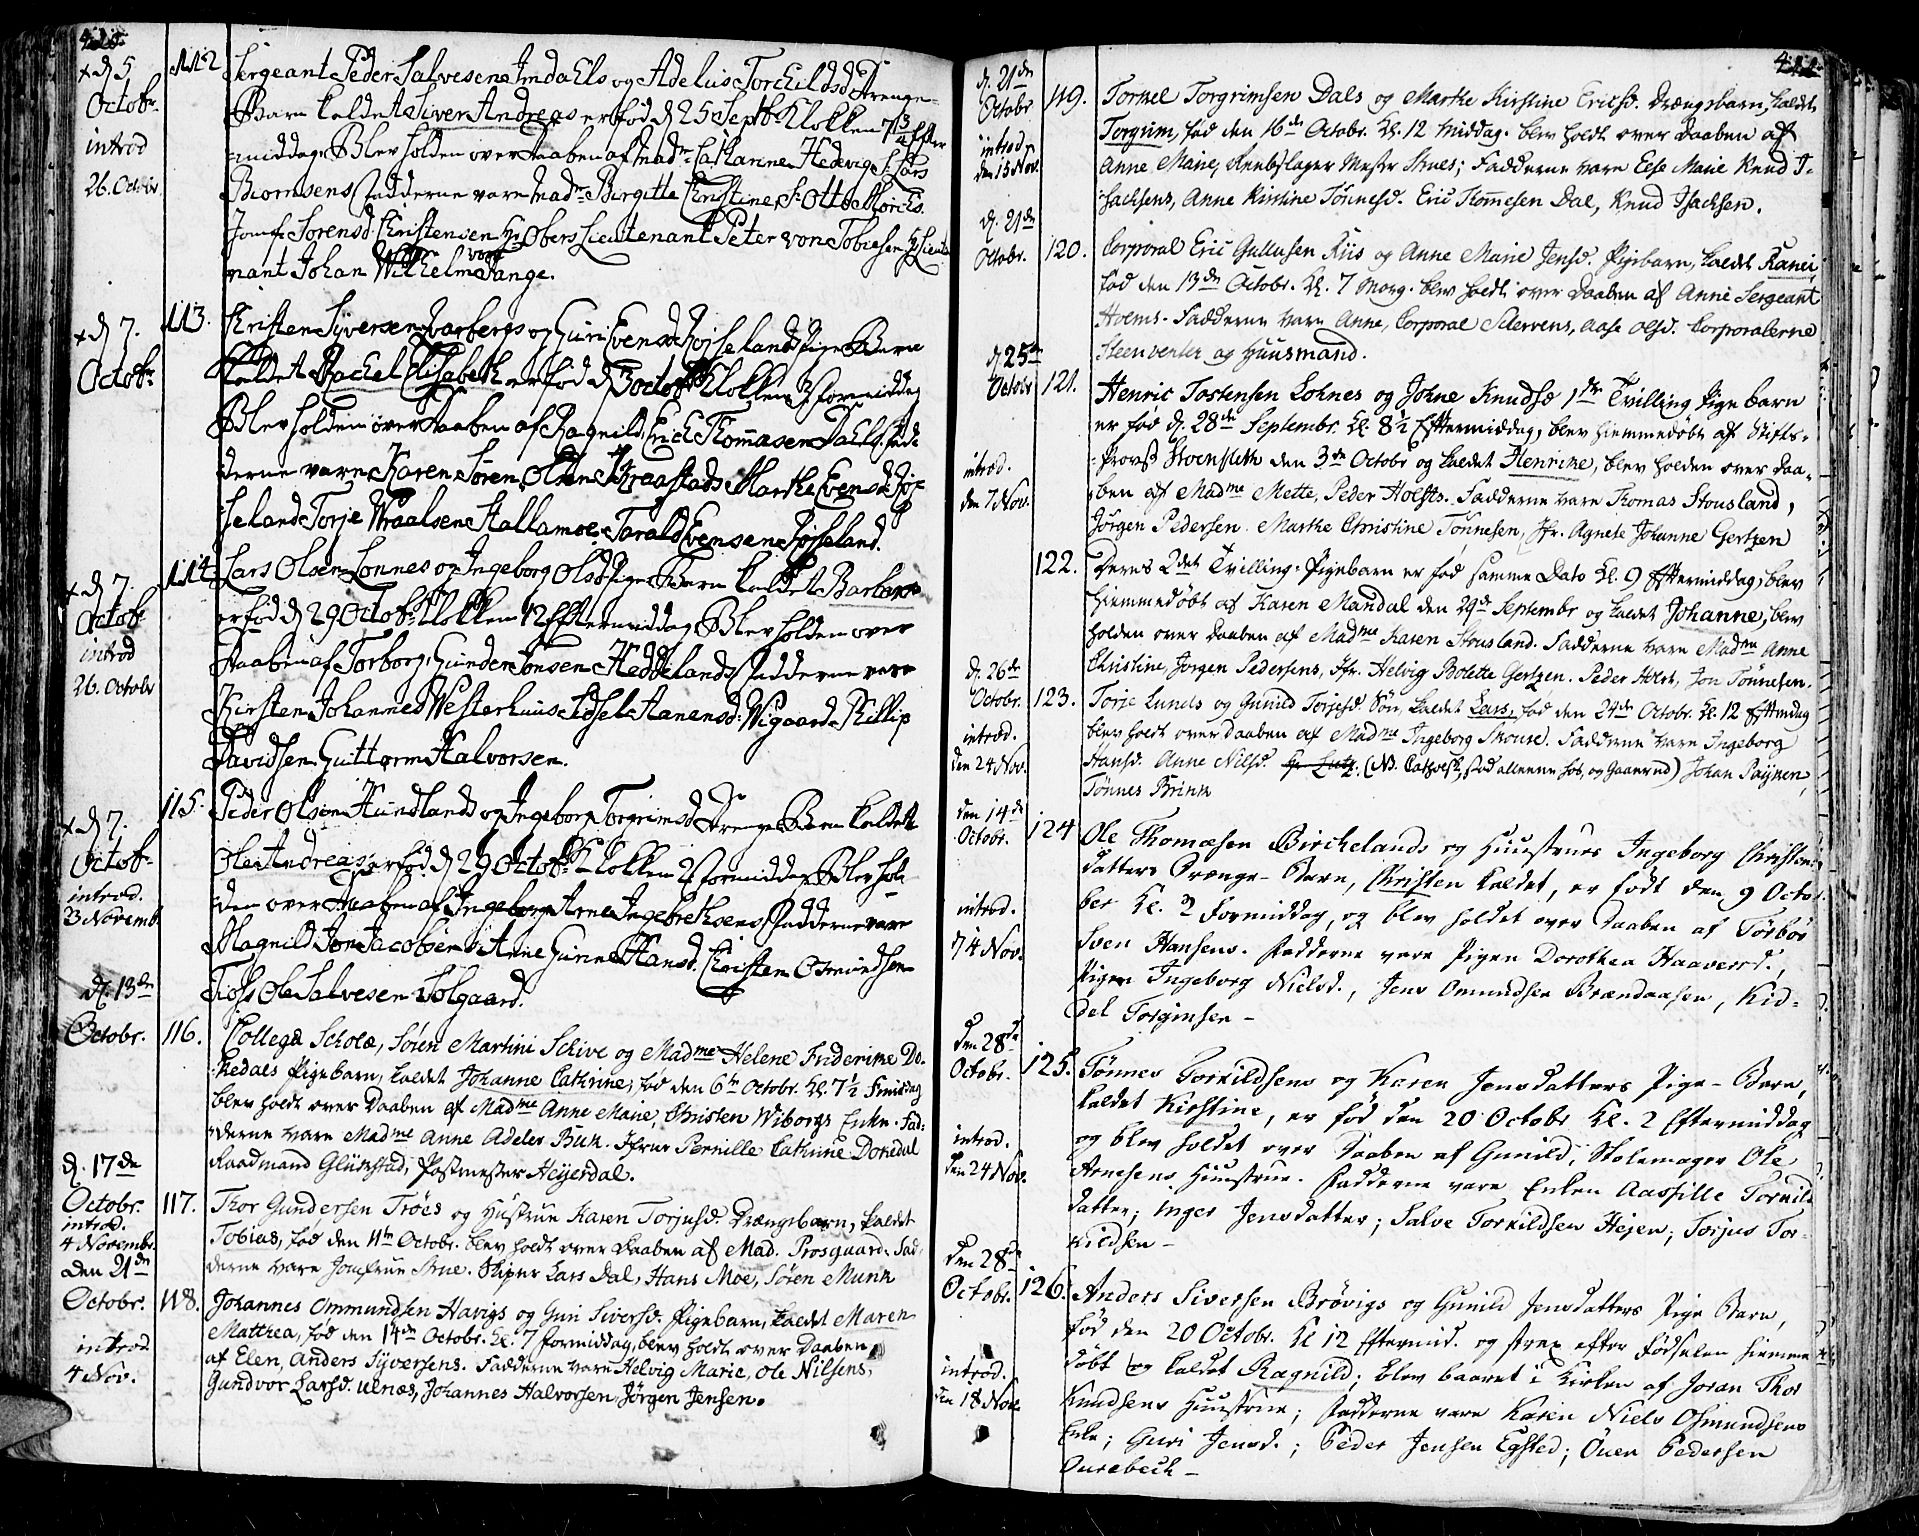 d 5
Octobr.
introd
26. Octobr
112
Sergeant Peder Salvesen og Adelus Torkildsd Drenge-
Barn kaldet Siver Andreas er fød d 25 Septbr. Klokken 7 3/4 Efter
middag Blev holden over Daaben af Madm Catharine Hedevig Sr Lars
Biornsens Fadderne vare Madm Birgitte Christine Sr Otto
Jomfr Sorensd. Christensen Hr Obers Lieutenant Peter von Tobiesen Hr Lieute
nant Johan Wilhelm von Tange.
d 7.
Octobr.
113.
Christen Syversen og Guri Evensd Røyselands Pige Barn
kaldet Rachel Elisabeth er fød d 3 octobr Klokken 3 formiddag
Blev holden over Daaben af Ragnild, Erich Thommasen Dahls, Fad
derne vare Karen Søren Olsen Kraastads Marthe Evensd Røy
seland Torje Wraalsen Hallamoe Tarald Evensen Røyseland.
d 7.
Octobr
introd
26. Octobr
114
Lars Olsen Lonnes og Ingeborg Olsd Pige Barn kaldet Barbara
er fød d 29 Octobr Klokken 12 Eftermiddag Blev holden over
Daaben af Torborg, Gunder Jonsen Heddelands Fadderne vare
Kirsten Johannes Westerhuus Sidsel Aanensd: Wigaard Phillip
Davidsen Guttorm Halvorsen.
d 7.
Octobr
introd.
23 Novemb.
115.
Peder Olsen Hundlands og Ingeborg Torgrimsd Drenge Barn kaldet
Ole Andreas er fød d 29 Octobr Klokken 2 formiddag Blev hol
den over Daaben af Ingeborg Arne Ingebrethsens Fadderne vare
Magnild Jon Jacobsens Anne Gurine Hansd. Christen Osmundsen
Fioss Ole Salvesen Solgaard.
d. 13de
Octobr.
116.
Collega Scholæ, Søren Martini Schive og Madme Helene Friderike Do-
kedals Pigebarn, kaldet Johanne Cathrine, fød den 6te Octobr. Kl. 7½ Fmiddag
blev holdt over Daaben af Madme Anne Marie, Christen Wiborgs Enke. Fad-
derne vare Madme Anne Adeler Buch. Jfrue Pernille Cathrine Dokedal
Raadmand Glückstad, Postmester Heyerdal.
d. 17de
Octobr.
introd.
4 Novembr.
117.
Thor Gundersen Trøes og Hustrue Karen Torjusd. Drængebarn, kaldet
Tobias, fød den 11te Octobr. blev holdt over Daaben af Mad. Prosgaard. Fad-
derne vare Jomfrue Skiper Lars Dal, Hans Moe, Søren Munk
den 21de
Octobr.
introd
4 Nov.
118.
Johannes Ommundsen Havigs og Guri Siversd. Pigebarn, kaldet Maren
Matthea, fød den 14de Octobr. Kl. 7 formiddag, blev holdt over Daaben
af Elen, Anders Syversens. Fadderne vare Helvig Marie, Ole Nilsens,
Gundvor Larsd. Ulnæs, Johannes Halvorsen, Jørgen Jensen.
d. 21de
Octobr
introd.
den 15 Nov.
119.
Torkel Torgrimsen Dals og Marthe Kirstine Ericsd. Drængebarn, kaldet
Torgrim, fød den 16de Octobr. Kl. 12 Middag. blev holdt over Daaben af
Anne Marie, Reebslager Mester Skues; Fadderne vare Else Marie Knud I-
sachsens, Anne Kirstine Tønnesd. Eric Thommesen Dal, Knud Isachsen.
d. 21de
Octobr.
120.
Corporal Eric Gullusen Riis og Anne Marie Jensd. Pigebarn, kaldet Kanei,
fød den 13de Octobr. Kl. 7 Morg. blev holdt over Daaben af Anne Sergeant
Holms. Fadderne vare Anne, Corporal Stervens, Aase Olsd. Corporalerne
Steenverter og Huusmand.
d 25de
Octobr
introd.
den 7 Nov.
121.
Henric Tostensen Lohnes og Johne Knudsd 1ste Tvilling Pige barn
er fød d. 28de Septembr. Kl. 8½ Eftermiddag, blev hiemmedøbt af Stifts-
Provst Stoensleth den 3de Octobr og kaldet Henrike, blev holden over Daa-
ben af Madme Mette, Peder Holsts. Fadderne vare Thomas Stousland,
Jørgen Pedersen. Marthe Christine Tønnesen, Jfr. Agnete Johanne Gertzen
122.
Deres 2det Tvilling-Pigebarn er fød samme Dato Kl. 9 Eftermiddag, blev
hiemmedøbt af Karen Mandal den 29de Septembr og kaldet Johanne, blev
holden over Daaben af Madme Karen Stousland. Fadderne vare Madme Anne
Christine, Jorgen Pedersens, Jfr. Helvig Bolette Gertzen. Peder Holst, Jon Tønnesen.
d. 26de
Octobr.
introd.
den 24 Nov.
123.
Torje Lunds og Gunild Torjesd. Søn, kaldet Lars, fød den 24de Octobr. Kl. 12 Eftmdag
blev holdt over Daaben af Madme Ingeborg Skouse. Fadderne vare Ingeborg
Hansd. Anne Nilsd. (NB. Catholsk, stod alleene hos, og Gaarud) Johan Paijnen,
Tønnes Brink
den 14de
Octobr.
introd.
74 Nov.
124
Ole Thomæsen Birchelands og Huustrues Ingeborg Christens
datters Drænge-Barn, Christen kaldet, er født den 9 Octo-
ber Kl. 2 Formiddag, og blev holdet over Daaben af Torbør
Sven Hansens. Fadderne vare Pigen Dorothea Haaversd.,
Pigen Ingeborg Nielsd., Jens Omundsen Brændaasen, Kid-
del Torgimsen -
den 28de
Octobr.
introd.
den 24 Nov.
125.
Tønnes Torkildsens og Karen Jensdatters Pige-Barn,
kaldet Kirstine, er fød den 20 Octobr Kl. 2 Eftermiddag
og blev holdet over Daaben af Gunild, Stolemager Ole
Arnesens Huustrue. Fadderne vare Enken Aassille Torkild
datter; Inger Jensdatter; Salve Torkildsen Hejen; Torjus Tor-
kildsen -
den 28de
Octobr.
introd.
den 18 Nov.
126.
Anders Siversen Brøvigs og Gunild Jensdatters Pige Barn,
fød den 20 Octobr. Kl 12 Eftermid. og strax efter Fødselen hiemme
døbt og kaldet Ragnild; blev baaret i Kirken af Joran Thor
Knudsens Huustrue; Fadderne vare Karen Niels Osmundsens
Enke; Guri Jensd.; Peder Jensen Egsted; Ouen Pedersen
Ourebech -